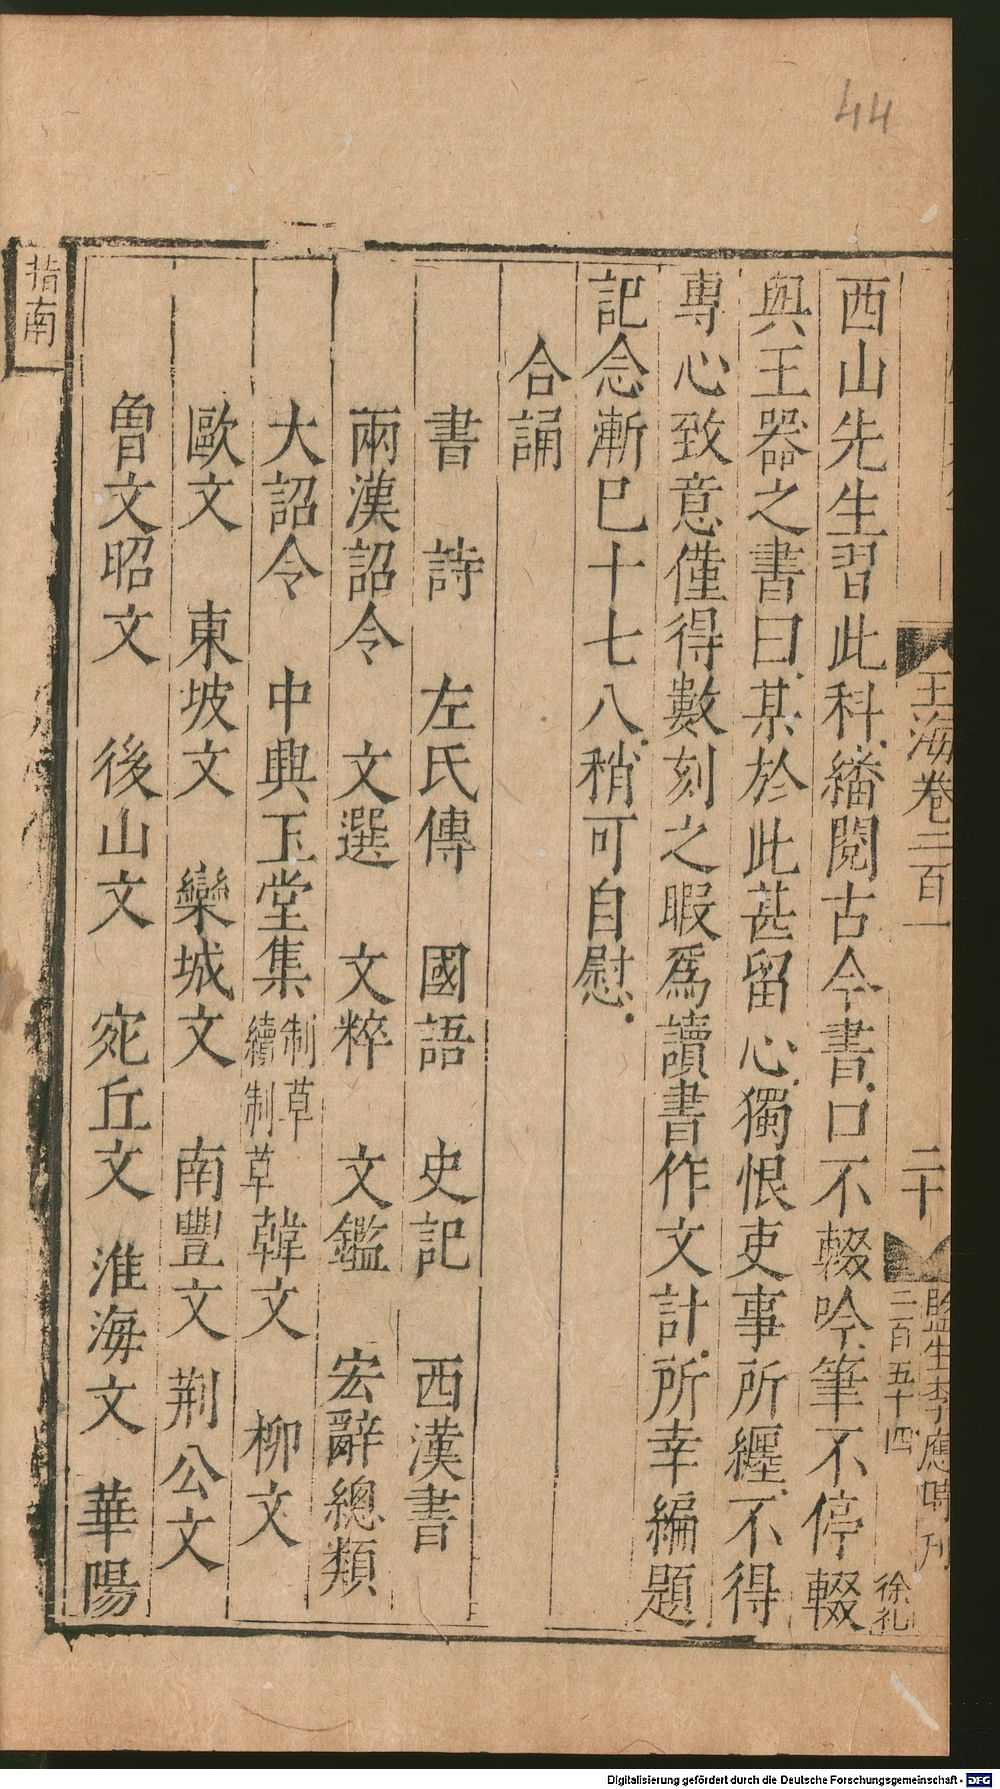 44
玉海卷二百一
二十
二百五十四
監生李應時刊
徐礼
西山先生習此科繙閱古今書口不輟吟筆不停輟
與王器之書曰某於此甚留心獨恨吏事所纒不得
專心致意僅得數刻之暇爲讀書作文計所幸編題
記念漸巳十七八稍可自慰
合誦
書 詩 左氏傳 國語 史記 西漢書
兩漢詔令 文選 文粹 文鑑 宏辭總類
大詔令 中興玉堂集 制草 續制草 韓文 柳文
歐文 東坡文 欒城文 南豐文 荆公文
曾文昭文 後山文 宛丘文 淮海文 華陽
指南
Digitalisierung gefördert durch die Deutsche Forschungsgemeinschaft - DFG